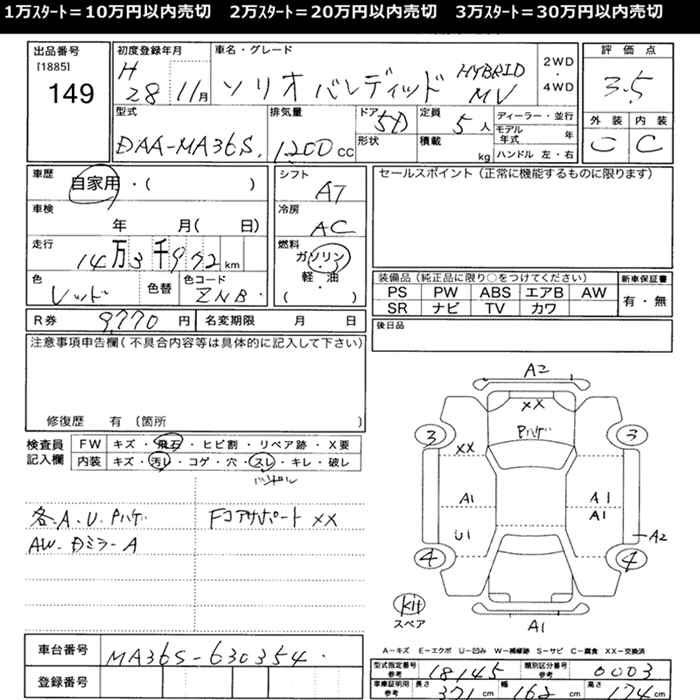 1万ｽﾀｰﾄ＝10万円以内売切　2万ｽﾀｰﾄ＝20万円以内売切　3万ｽﾀｰﾄ＝30万円以内売切
出品番号
[1885]
149
初度登録年月
H
28 11月
車名・グレード
ソリオ バンディッド HYBRID
MV
2WD
・
4WD
評価点
3.5
外装 内装
C C
型式
DAA-MA36S
排気量
1200 cc
ドア 5D
形状
定員 5 人
積載 kg
ディーラー・並行
モデル年式 年
ハンドル 左・右
車歴 自家用・( )
車検 年 月( 日)
走行
14万3千972 km
色 レッド
色替
色コード ZNB
シフト AT
冷房 AC
燃料
ガソリン
・
軽・油
( )
セールスポイント（正常に機能するものに限ります）
装備品（純正品に限り○をつけてください）
PS PW ABS エアB AW
SR ナビ TV カワ
新車保証書
有・無
R券 9770 円
名変期限 月 日
後日品
注意事項申告欄（不具合内容等は具体的に記入して下さい）
修復歴 有（箇所 ）
検査員
記入欄
FW キズ・飛石・ヒビ割・リペア跡・X要
内装 キズ・汚レ・コゲ・穴・スレ・キレ・破レ
ハンドル
各.A.U.Pハゲ
AW.Dミラ-A
Fコアサポート XX
A2
XX
Pハゲ
3
3
XX
A1
A1
A1
U1
A2
4
4
Kit
スペア
A1
A-キズ E-エクボ U-凹み W-補修跡 S-サビ C-腐食 XX-交換済
車台番号 MA36S-630354
登録番号
型式指定番号
参考
18145
類別区分番号
参考
0003
車庫証明用
参考
長さ 371 cm
幅 162 cm
高さ 174 cm